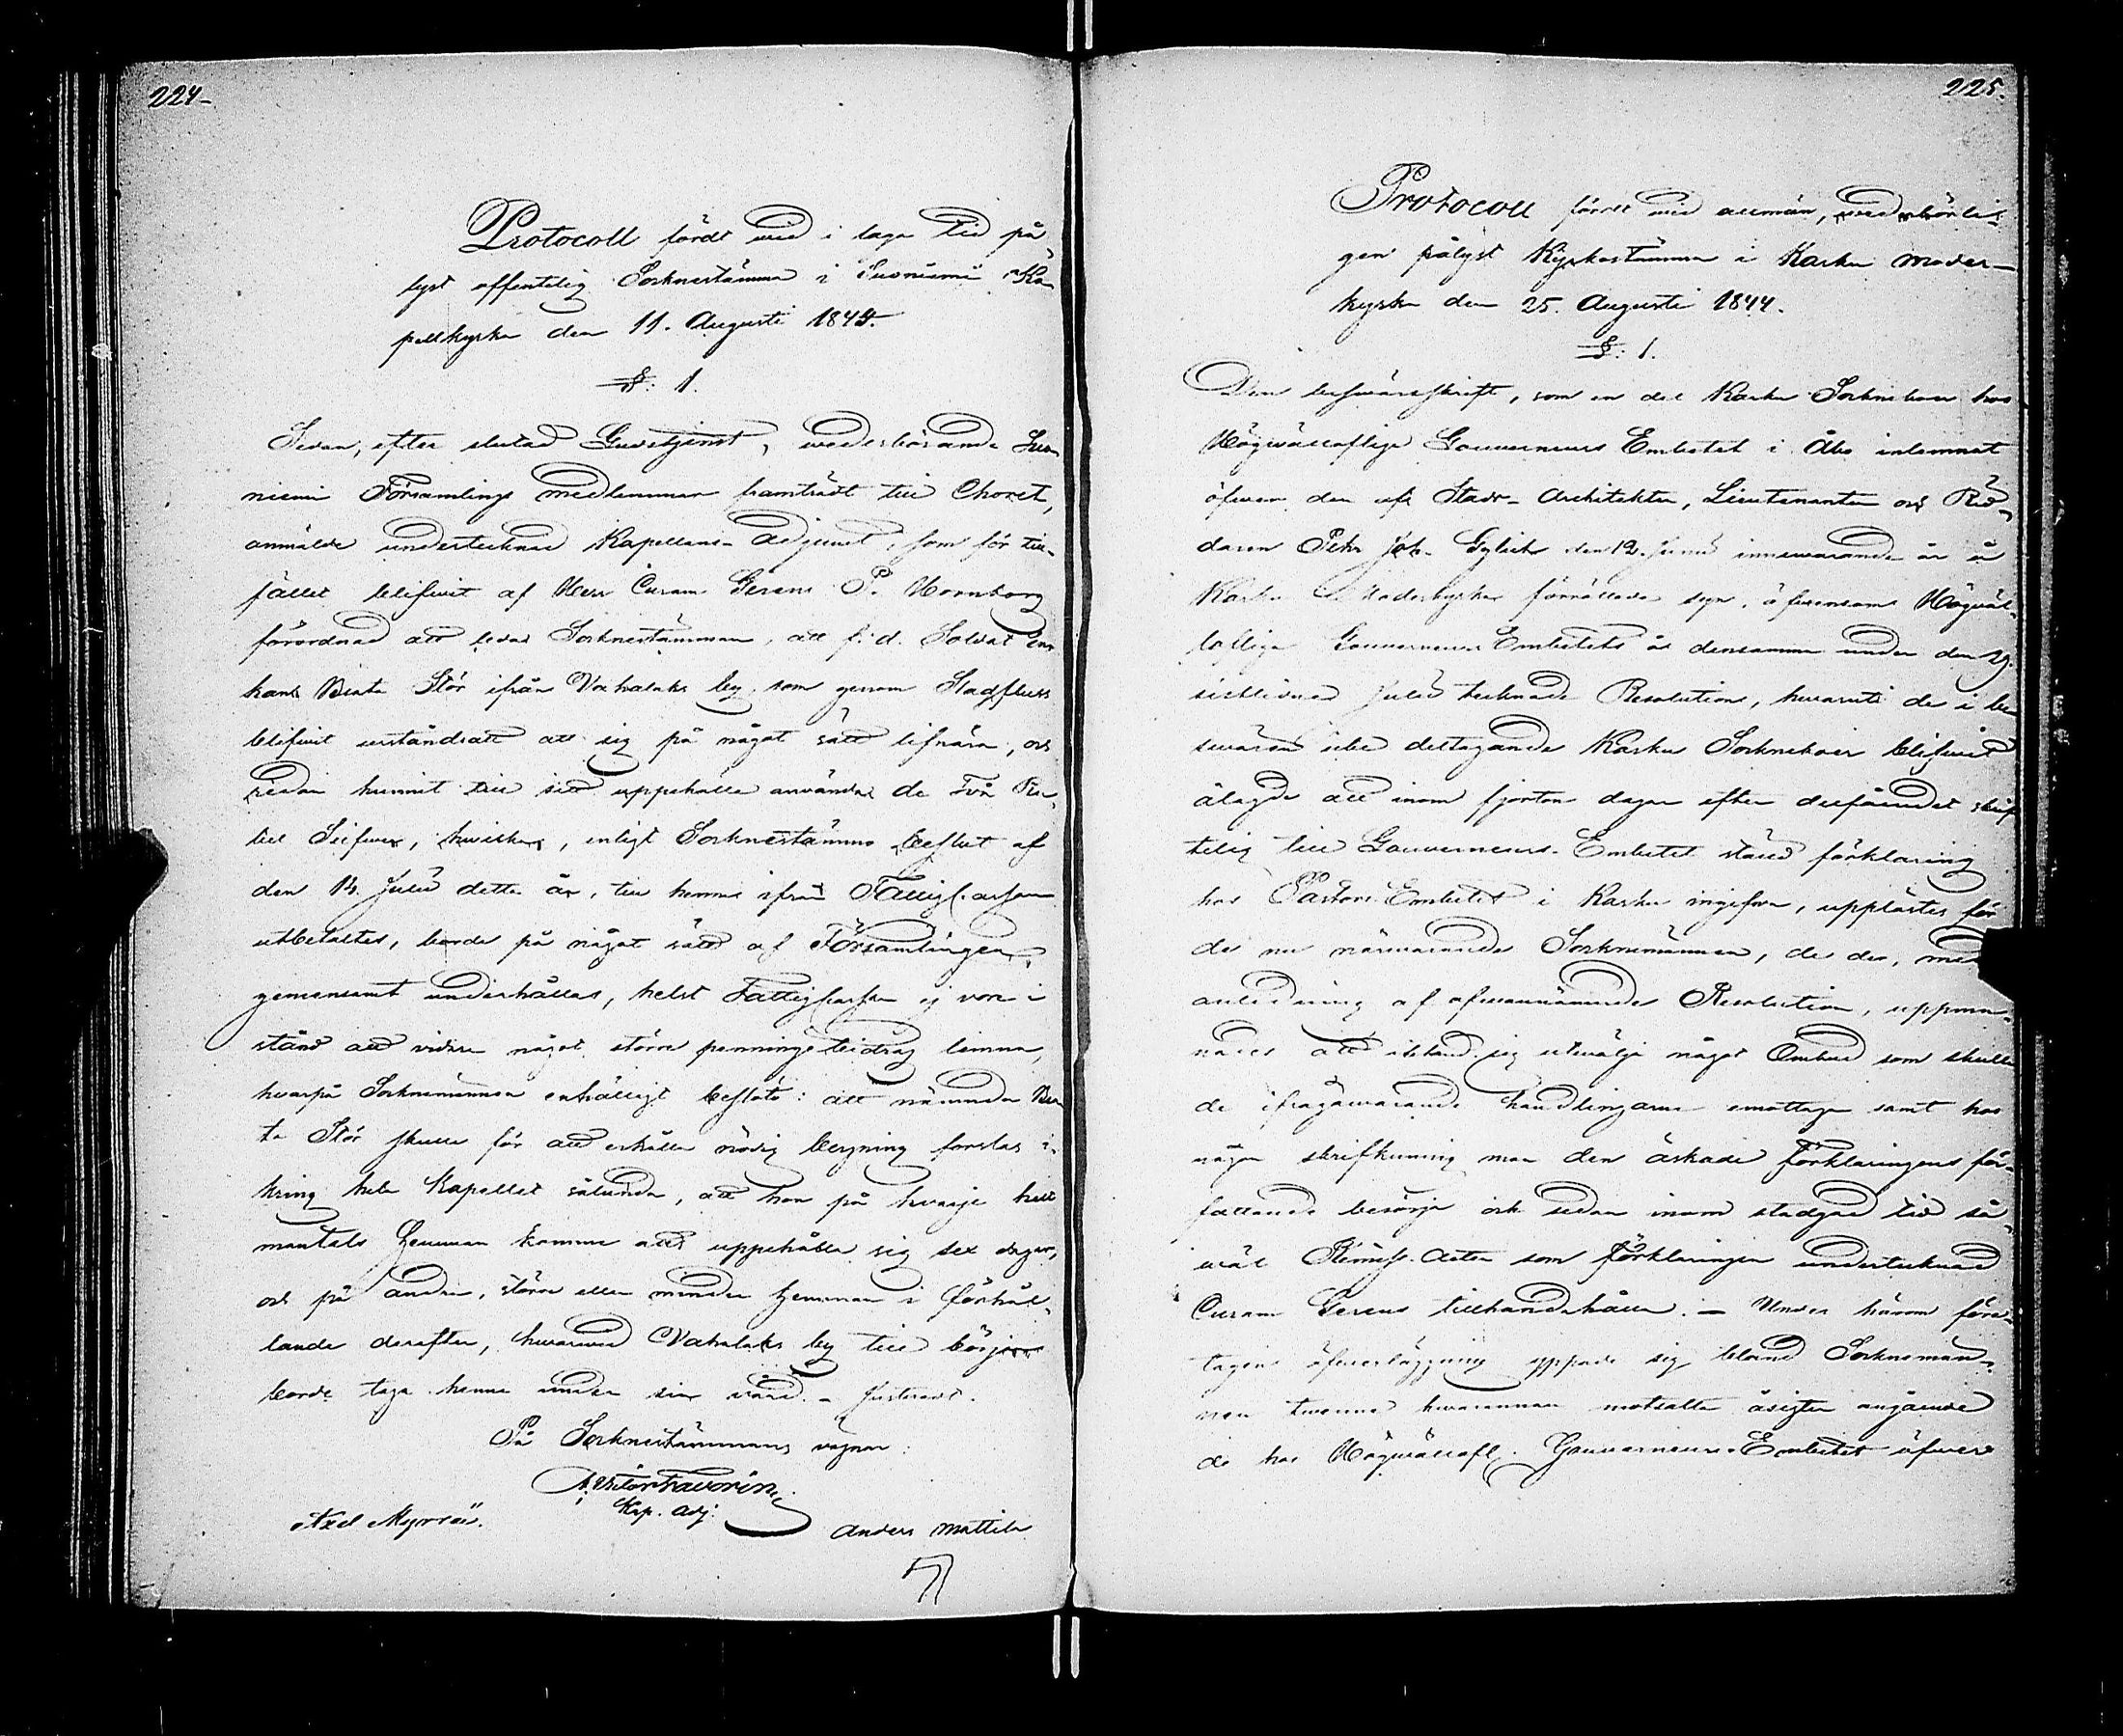 224.
Protocoll fördt wid i laga tid på-
lyst offentelig Socknestämma i Suoniemi Ka-
pellkyrka den 11. Augusti 1844.
§: 1.
Sedan, efter slutad Gudstjenst, wederbörande Suo-
niemi Församlings medlemmar framträdt till Choret,
anmälde undertecknad Kapellans-Adjunct, som för till-
fället blifwit af Herr Curam Gerens P. Hornborg
förordnad att leda Socknestämman, att f. d. Soldat En-
kan Beata Stör ifrån Vahalaks by som genom Slagfluss
blifwit urståndsatt att sig på något sätt lifnära, och
redan hunnit till sitt uppehälle använda de två Ru-
bel Silfwer, hwilka, enligt Socknestämmo beslut af
den 14. Julii detta år, till henne ifrån Fattigcassan
utbetaltes, borde på något sätt af Församlingen
gemensamt underhållas, helst Fattigcassan ej vore i
stånd att vidare något större penninge bidrag lemna,
hwarpå Socknemännen enhälligt beslöto: att nämnda Bea-
ta Stör skulle för att erhålla nödig bergning forslas i-
kring hela Kapellet sålunda, att hon på hwarje helt
mantals hemman komme att uppehålla sig sex dagar,
och på andra, större eller mindre hemman i förhål-
lande derefter, hwarwid Vahalaks by till börjar
borde taga henne under sin vård. – Justeradt.
På Socknestämmans vägnar:
A. Vitor Favorin
Kap. Adj.
Axel Myrröi.
Anders Mattila
225.
Protocoll fördt wid allmän, wederbörli-
gen pålyst Kyrkostämma i Karku Moder-
kyrka den 25. Augusti 1844.
§: 1.
Den beswärsskrift, som en del Karku Socknebor hos
Högwällofliga Gouverneurs Embetet i Åbo inlemnat
öfwer den af Stads-Architekten, Lieutenanten och Rid-
daren Pehr Joh. Gylich den 12. Junii innewarande år å
Karku Moderkyrka förrättade syn, äfwensom Högwäl-
lofliga Gouverneurs Embetets å densamma under den 29.
sistlidne Julii tecknade Resolution, hwaruti de i be-
swären icke deltagande Karku Socknebor blifwit
ålagde att inom fjorton dagar efter delfåendet skrif-
telig till Gouverneurs-Embetet ställd förklaring
hos Pastors Embetet i Karku ingifwa, upplästes för
de nu närwarande Socknemännen, de der, med
anledning af ofwannämnde Resolution, uppma-
nades att ibland sig utwälja något Ombud som skulle
de ifrågawarande handlingarne emottaga samt hos
någon skrifkunnig man den äskade förklaringens för-
fattande besörja och sedan inom stadgad tid så-
wäl Remiss-Acten som förklaringen undertecknad
Curam Gerens tillhandahålla. – Under härom före-
tagen öfwerläggning yppade sig bland Socknemän-
nen twenne hwarannan motsatta åsigter angående
de hos Högwällofl. Gouverneurs-Embetet öfwer